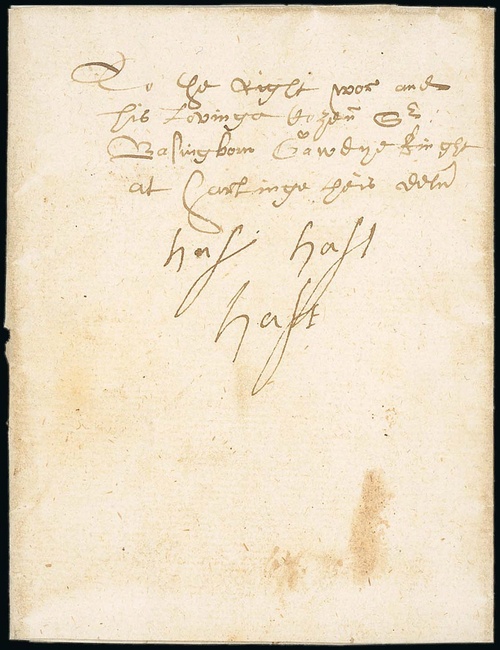 To the Right wor and
his Lovinge Cozen Sr
Basingborn Gawdye knight
at Harlinge theis delr
hast hast
hast